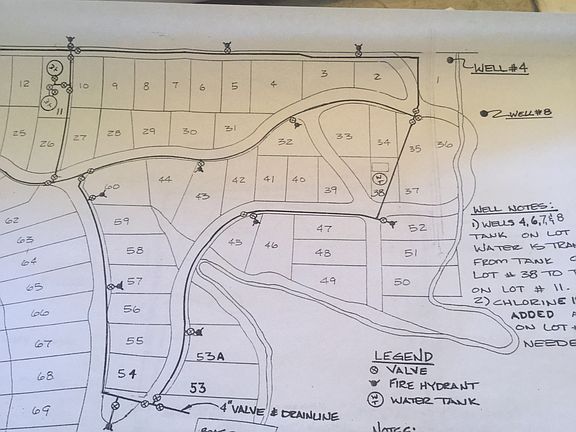 WELL #4
WELL #8
12
11
10
9
8
7
6
5
4
3
2
1
25
26
27
28
29
30
31
32
33
34
35
36
37
38
39
40
41
42
43
44
60
59
58
57
56
55
54
45
46
47
48
49
52
51
50
62
63
64
65
66
67
68
69
53A
53
4" VALVE & DRAINLINE
WELL NOTES:
1) WELLS 4,6,7,&8
TANK ON LOT
WATER IS TRAN
FROM TANK
LOT # 38 TO T
ON LOT # 11.
2) CHLORINE
ADDED
ON LOT
NEEDE
LEGEND
VALVE
FIRE HYDRANT
WT WATER TANK
NOTES: